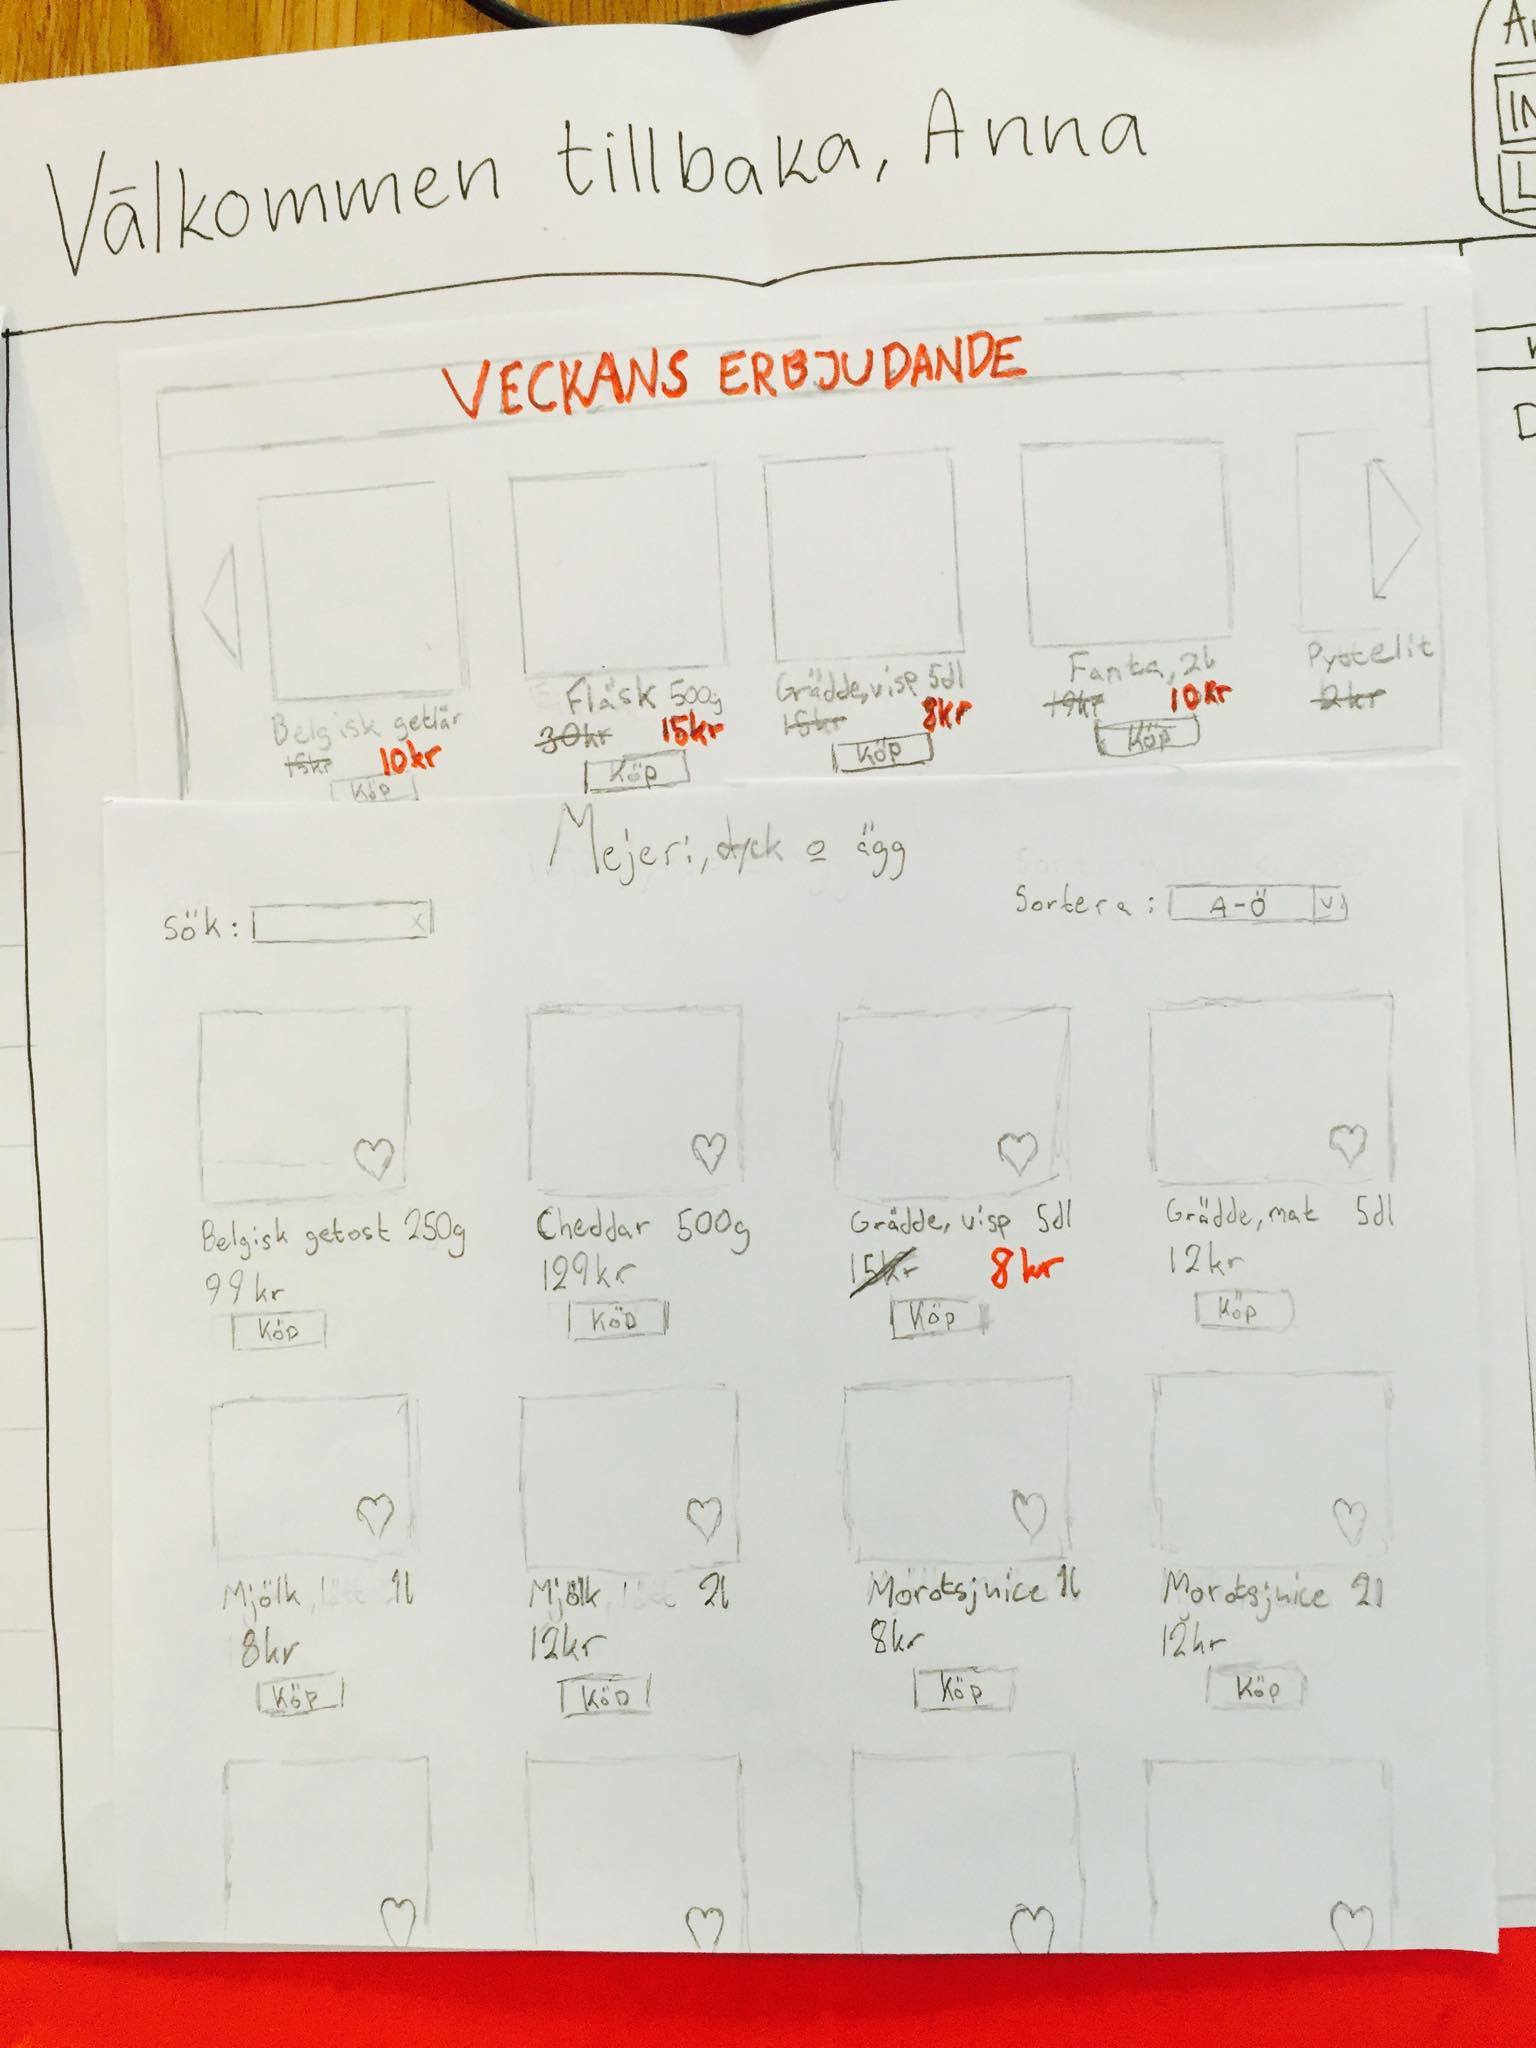 Välkommen tillbaka, Anna
IN
L
VECKANS ERBJUDANDE
Belgisk getlår
15kr 10kr
Köp
Fläsk 500g
30kr 15kr
Köp
Grädde, visp 5dl
15kr 8kr
Köp
Fanta, 2l
19kr 10kr
Köp
Pyttelit
2kr
Mejeri, dryck o ägg
Sök: x
Sortera: A-Ö v
Belgisk getost 250g
99kr
Köp
Cheddar 500g
129kr
Köp
Grädde, visp 5dl
15kr 8kr
Köp
Grädde, mat 5dl
12kr
Köp
Mjölk, lätt 1l
8kr
Köp
Mjölk, lätt 2l
12kr
Köp
Morotsjuice 1l
8kr
Köp
Morotsjuice 2l
12kr
Köp